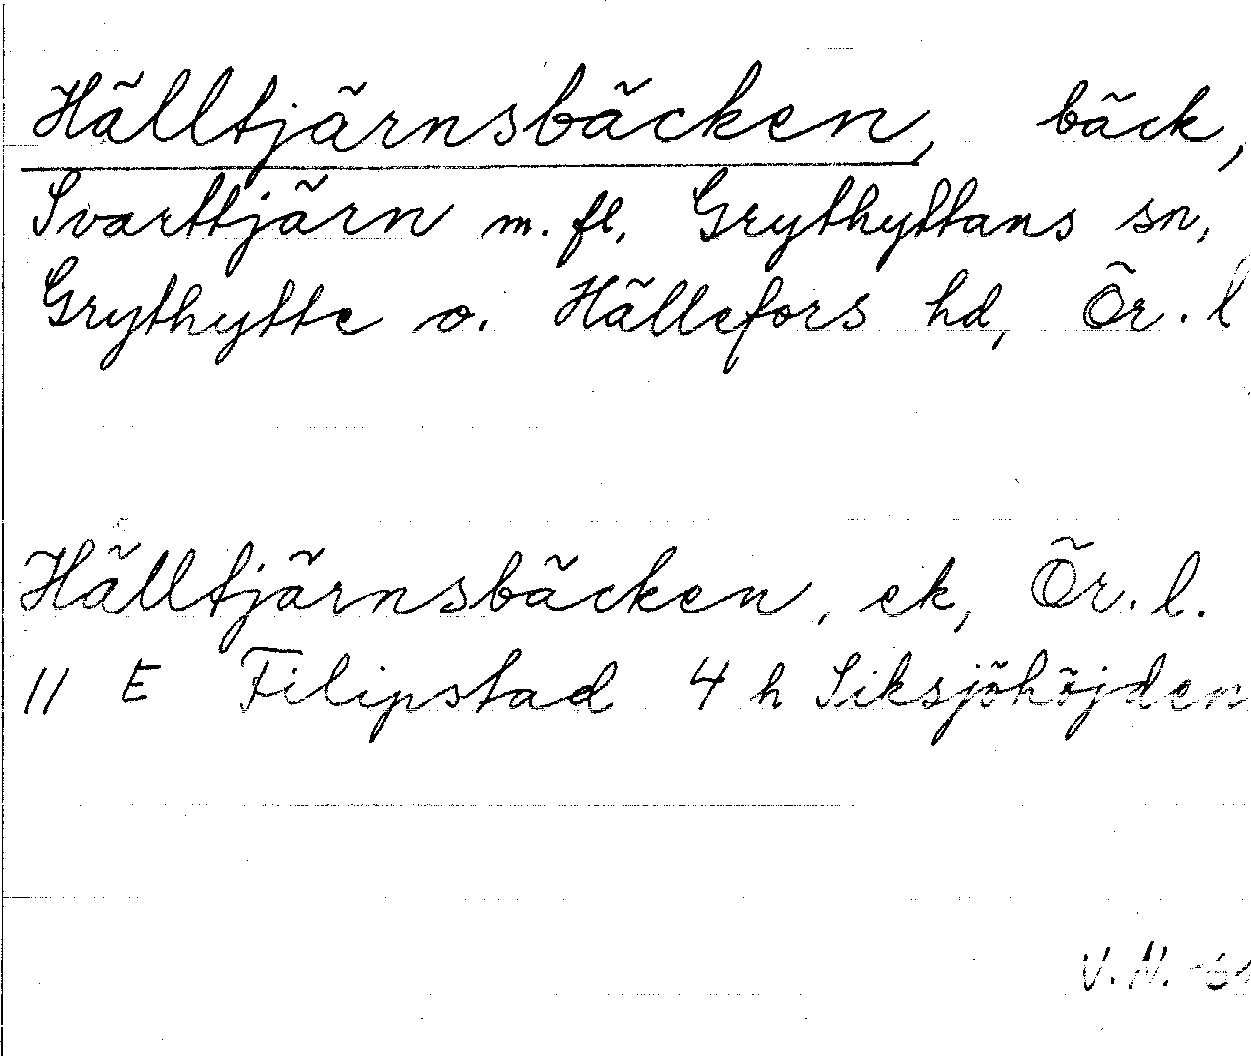 Hälltjärnsbäcken, bäck,
Svarttjärn m. fl. Grythyttans sn,
Grythytte o. Hällefors hd, Ör. l
Hälltjärnsbäcken, ek, Ör. l.
11 E Filipstad 4 h Siksjöhöjden
V. N. -61